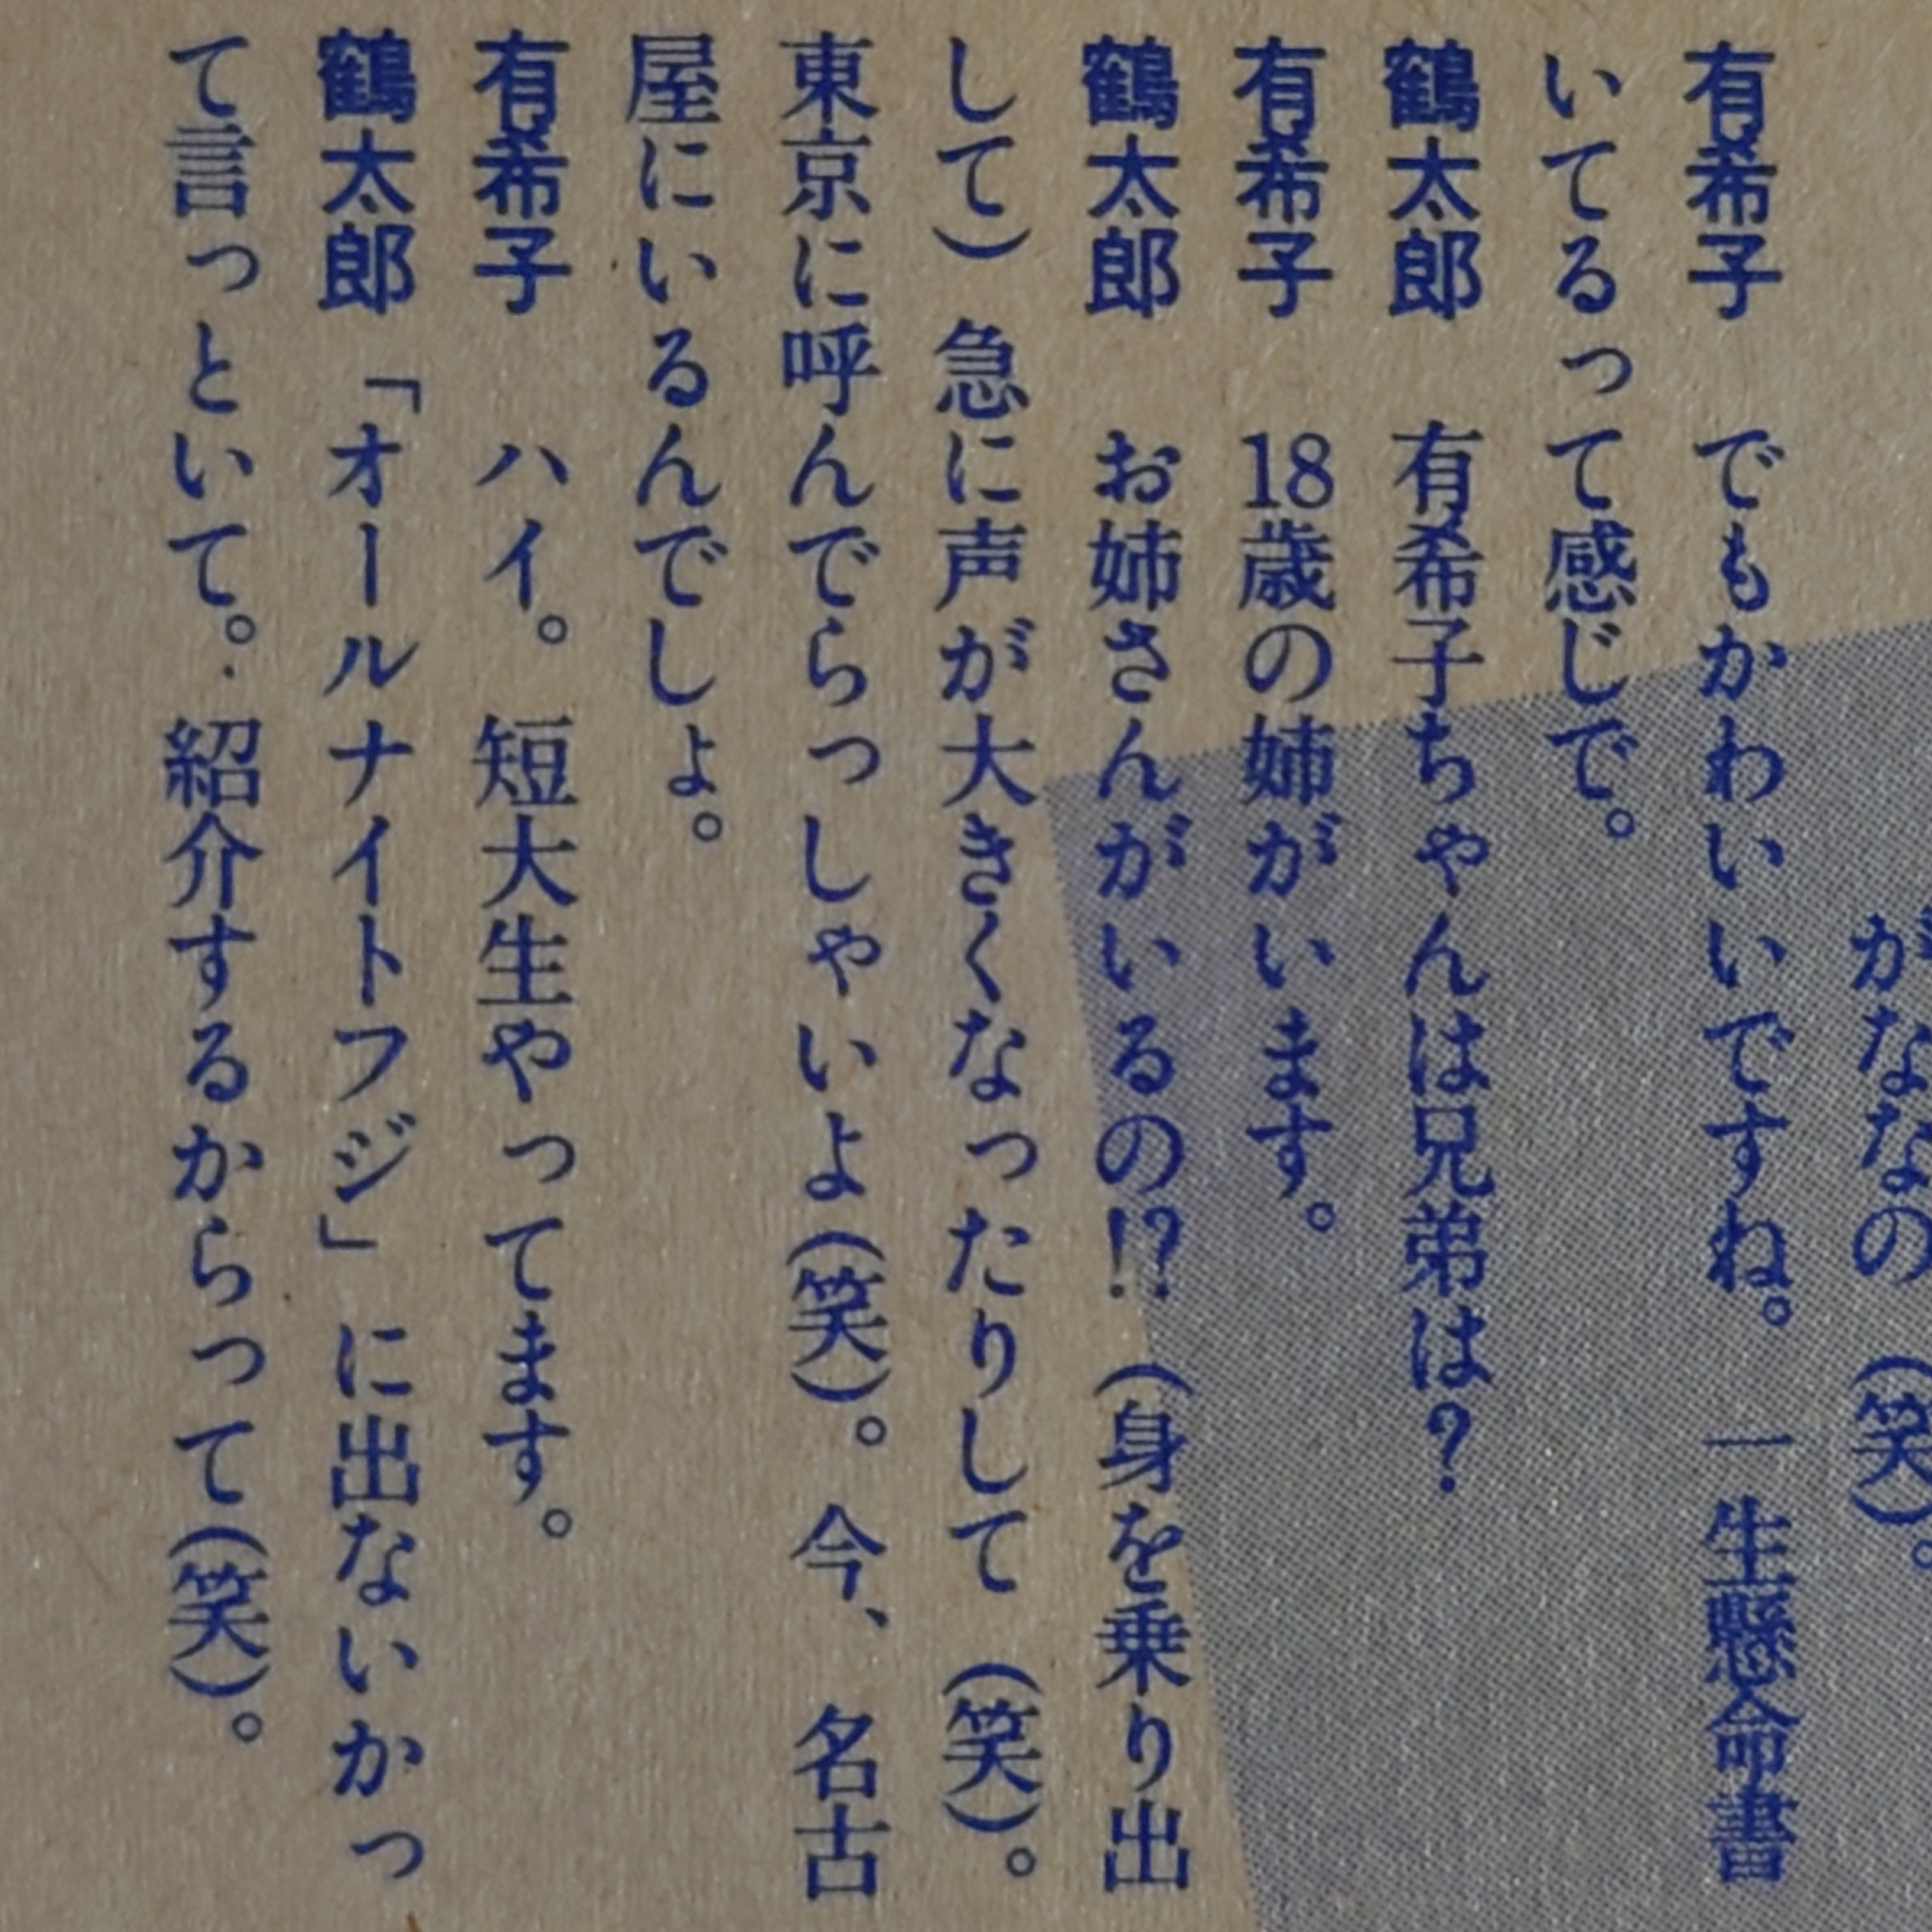 がななの（笑）。
有希子　でもかわいいですね。一生懸命書
いてるって感じで。
鶴太郎　有希子ちゃんは兄弟は？
有希子　18歳の姉がいます。
鶴太郎　お姉さんがいるの!?（身を乗り出
して）急に声が大きくなったりして（笑）。
東京に呼んでらっしゃいよ（笑）。今、名古
屋にいるんでしょ。
有希子　ハイ。短大生やってます。
鶴太郎「オールナイトフジ」に出ないかっ
て言っといて。紹介するからって（笑）。